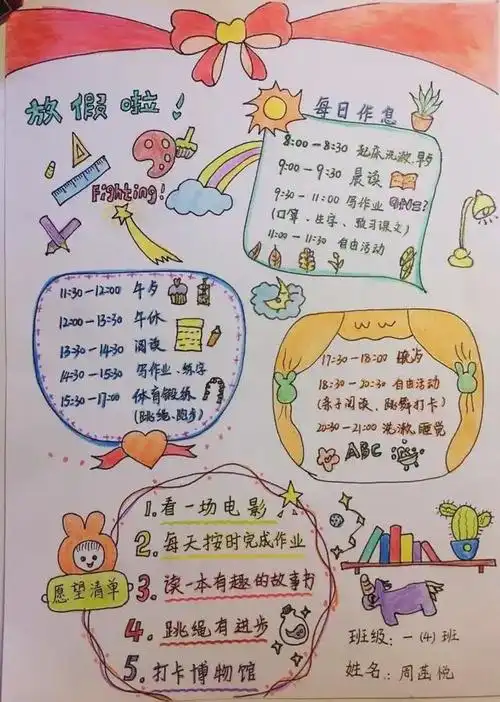 放假啦！
每日作息
8:00-8:30 起床、洗漱、早点
9:00-9:30 晨读
9:30-11:00 写作业
(口算、生字、预习课文)
11:00-11:30 自由活动
Fighting!
11:30-12:00 午点
12:00-13:30 午休
13:30-14:30 阅读
14:30-15:30 写作业、练字
15:30-17:00 体育锻炼
(跳绳、跑步)
17:30-18:00 晚点
18:30-20:30 自由活动
(亲子阅读、跳舞打卡)
20:30-21:00 洗漱、睡觉
ABC
愿望清单
1.看一场电影
2.每天按时完成作业
3.读一本有趣的故事书
4.跳绳有进步
5.打卡博物馆
班级:一(4)班
姓名:周菡悦